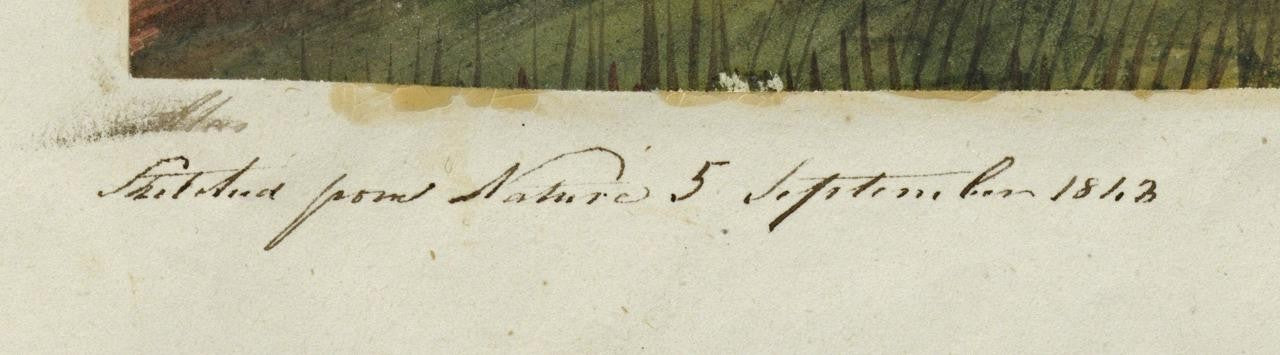 Sketched from Nature 5 September 1843